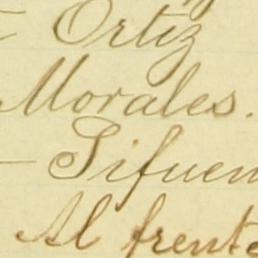 – Ortiz
Morales.
– Sifuen
Al frente